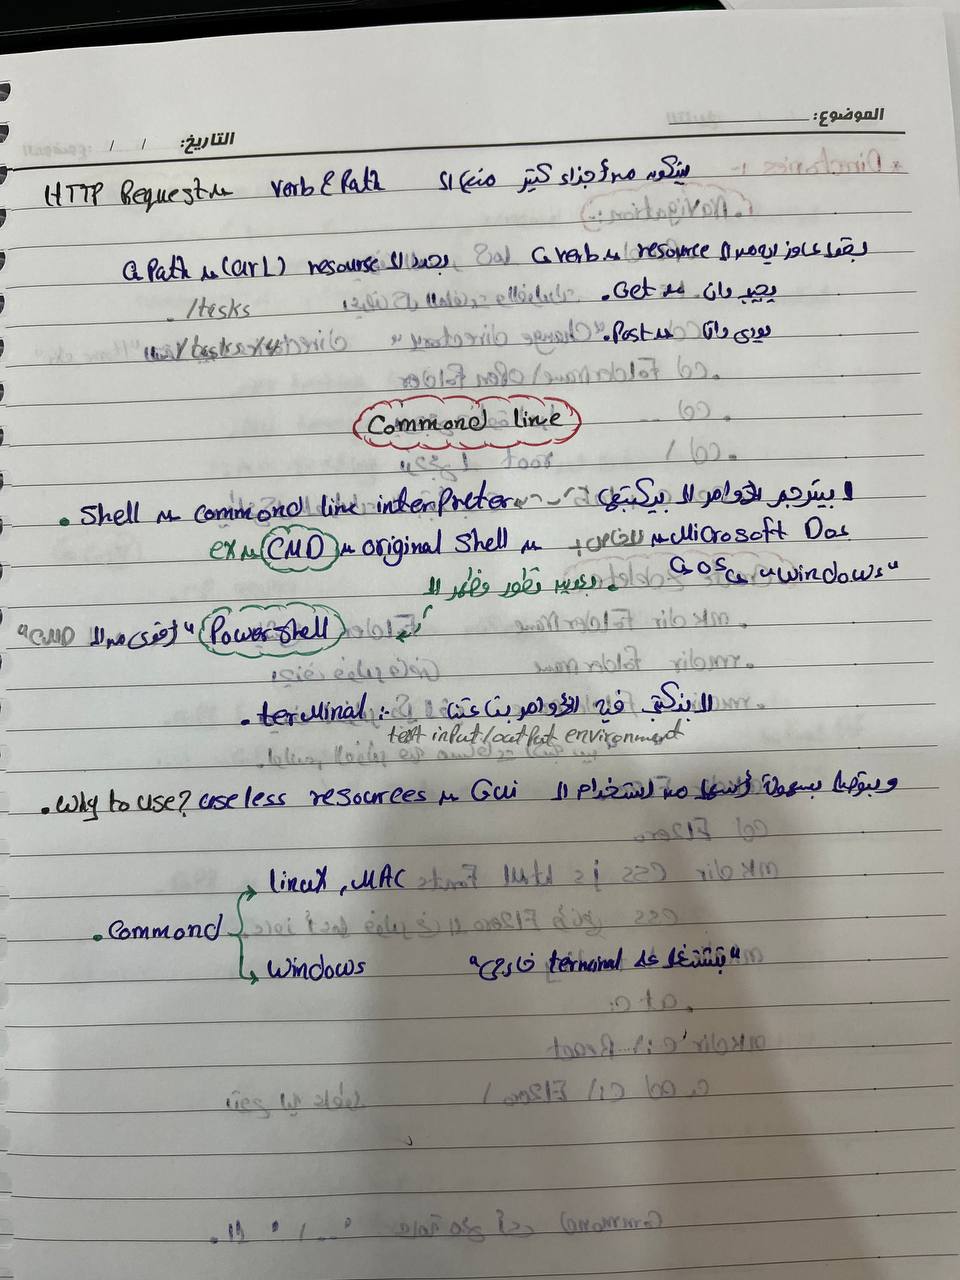 الموضوع:
التاريخ: / /
HTTP Request verb & Path بيتكون من أجزاء كتير منها ال
verb resource عاوز ايه من ال
Path (url) resourse يحدد ال
Get يجيب داتا
/tasks
Post يودي داتا
Commond line
. Shell commond line interpreter بيترجم الأوامر ال بيكتبها
ex CMD original Shell الخاص Microsoft Dos
OS "windows"
. وبعدين تطور وظهر ال
Power Shell "أقوى من ال CMD"
. terminal :- ال بنكتب فيه الأوامر بتاعتنا
text input/output environment
. why to use? use less resources Gui أسهل من استخدام ال
. Commond
linux, MAC
windows "بتشتغل على terminal خارجي"